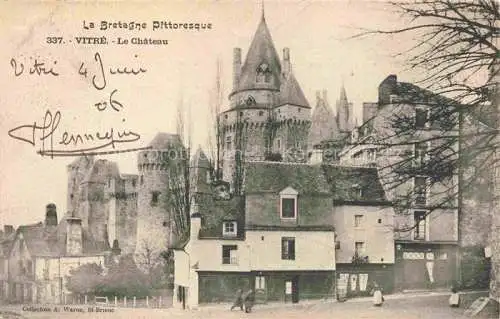 La Bretagne Pittoresque
337. - VITRÉ. - Le Château
Vitré 4 Juin
06
Hennequin
Collection A. Waron, St-Brieuc